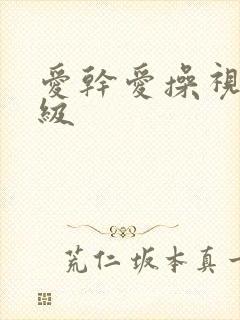 愛幹愛操視
級
荒仁坂本真一